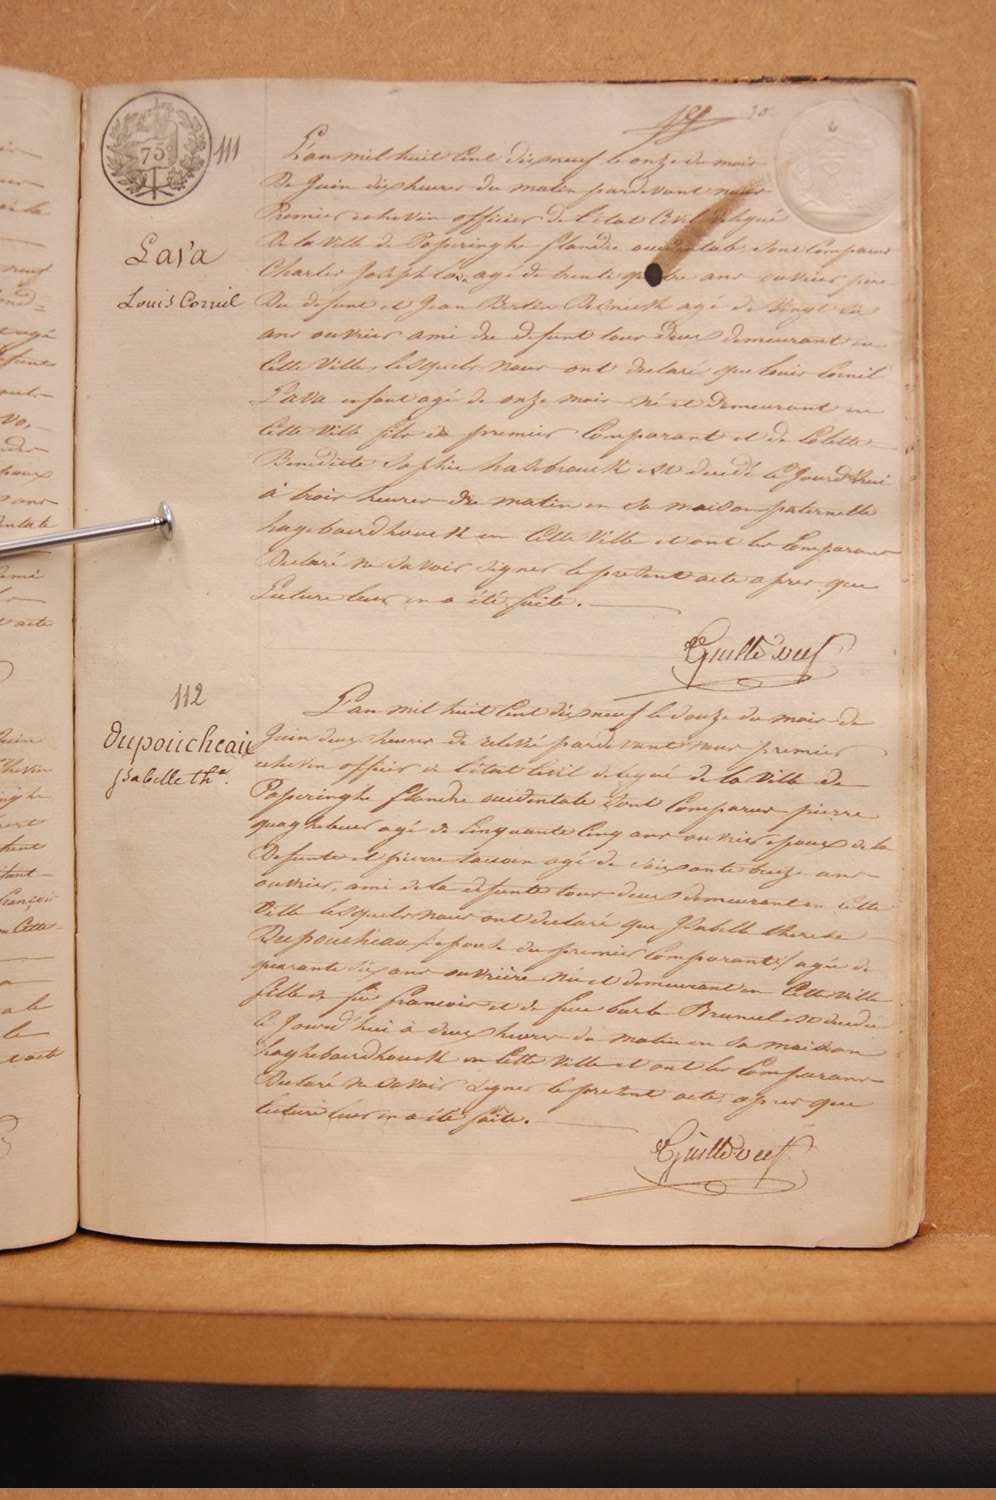 75
111
30
Lava
Louis Cornil
L'an mil huit Cent dix neuf le onze du mois
De Juin dix heures du matin pardevant nous
Premier echevin officier de l'etat Civil delegué
De la Ville de Poperinghe flandre occidentale sont Comparus
Charles Joseph Lava agé de trente quatre ans ouvrier pere
Du defunt et Jean Bertin agé de Vingt
ans ouvrier ami du defunt tous deux demeurant en
Cette Ville, lesquels nous ont declaré que louis Cornil
Lava enfant agé de onze mois né et Demeurant en
Cette Ville fils du premier Comparant et de Colette
Benedicte Sophie hazebrouck est decedé Ce Jourd'hui
à trois heures du matin en Sa maison paternelle
hagebaerdhouck en Cette Ville et ont les Comparans
Declaré ne Savoir Signer le present acte apres que
Lecture leur en a été faite.
112
Dupoucheau
Isabelle the.
L'an mil huit Cent dix neuf le douze du mois de
Juin deux heures de relevé pardevant nous premier
echevin officier de l'état Civil delegué de la Ville de
Poperinghe flandre occidentale Sont Comparus pierre
quaghebeur agé de Cinquante Cinq ans ouvrier epoux de la
Defunte et pierre agé de Soixante treize ans
ouvrier, ami de la defunte tous deux demeurant en Cette
Ville lesquels nous ont declaré que Isabelle therese
Dupoucheau /:epouse du premier Comparant:/ agée de
quarante six ans ouvrière née et demeurant en Cette Ville
fille de feu francois et de feue barbe Bruneel est decedée
Ce Jourd'hui à deux heures du matin en Sa maison
haghebaerdhouck en Cette Ville et ont les Comparans
Declaré ne Savoir Signer le present acte apres que
lecture leur en a été faite.